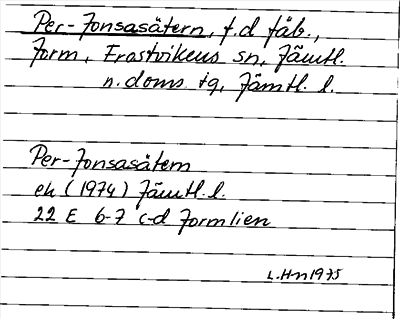 Per-Jonsasätern, f.d fäb.,
Jorm, Frostvikens sn, Jämtl.
n. doms tg, Jämtl. l.
Per-Jonsasätern
ek (1974) Jämtl. l.
22 E 6-7 c-d Jormlien
L. Hn 1975